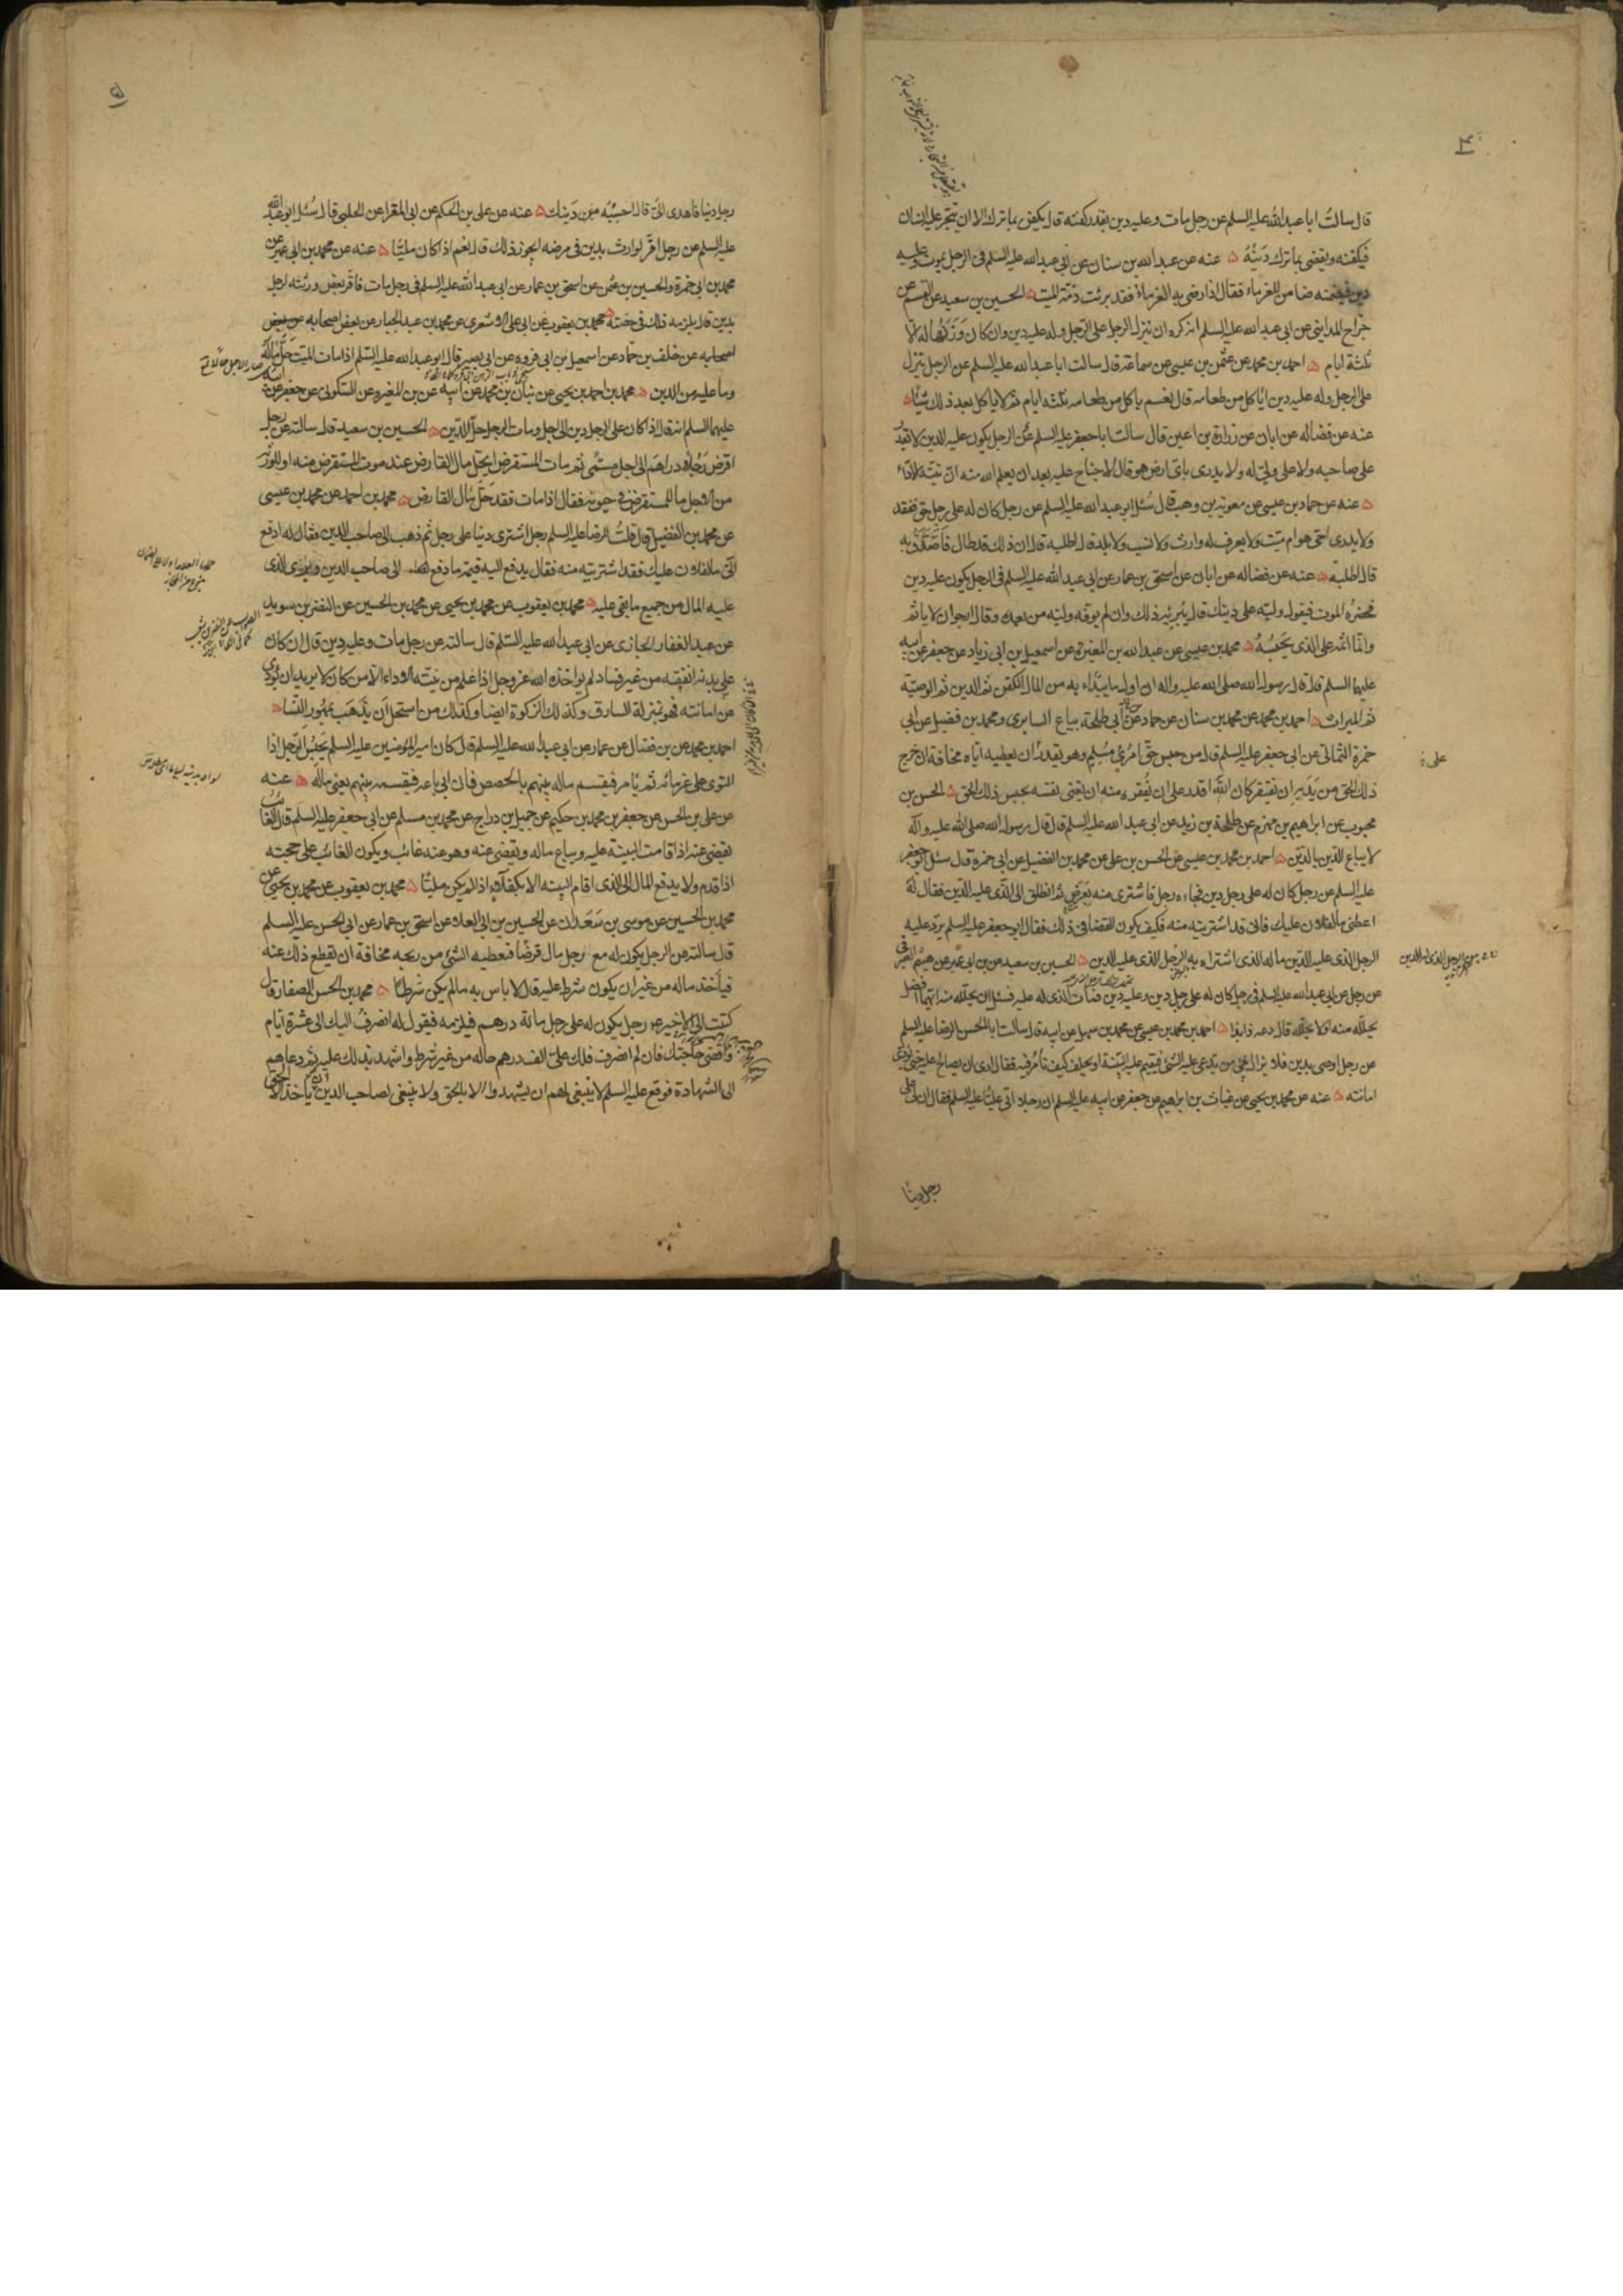 قال سالت ابا عبد الله عليه السلم عن رجل مات وعليه دين بقدر كفنه قال يكفن بما ترك الا ان يتجر عليه انسان
فيكفنه ويقضى بما ترك دينه ۵ عنه عن عبد الله بن سنان عن ابي عبد الله عليه السلم في الرجل يموت وعليه
دين فيضمنه ضامن للغرماء فقال اذا رضى به الغرماء فقد برئت ذمة الميت ۵ الحسين بن سعيد عن القسم عن
جراح المدايني عن ابي عبد الله عليه السلم انه كره ان ينزل الرجل على الرجل وله عليه دين وان كان وزنها له الا
ثلثة ايام ۵ احمد بن محمد عن عثمن بن عيسى عن سماعة قال سالت ابا عبد الله عليه السلم عن الرجل ينزل
على الرجل وله عليه دين اياكل من طعامه قال نعم ياكل من طعامه ثلثة ايام ثم لا ياكل بعد ذلك شيئا ۵
عنه عن فضاله عن ابان عن زرارة بن اعين قال سالت ابا جعفر عليه السلم عن الرجل يكون عليه الدين لا يقدر
على صاحبه ولا على ولي له ولا يدرى باى ارض هو قال لا جناح عليه بعد ان يعلم الله منه ان نيته الاداء
۵ عنه عن حماد بن عيسى عن معوية بن وهب قال سئل ابو عبد الله عليه السلم عن رجل كان له على رجل حق ففقد
ولا يدرى احى هو ام ميت ولا يعرف له وارث ولا نسب ولا بلد قال اطلبه قال ان ذلك قد طال فاصدق به
قال اطلبه ۵ عنه عن فضاله عن ابان عن اسحق بن عمار عن ابي عبد الله عليه السلم في الرجل يكون عليه دين
فحضره الموت فيقول وليه على دينك قال يبرئه ذلك وان لم يوفه وليه من بعده وقال ارجو ان لا ياثم
وانما اثمه على الذى يحبسه ۵ محمد بن عيسى عن عبد الله بن المغيرة عن اسمعيل بن ابي زياد عن جعفر عن ابيه
عليهما السلم قال قال رسول الله صلى الله عليه واله ان اول ما يبداء به من المال الكفن ثم الدين ثم الوصية
ثم الميراث ۵ احمد بن محمد عن محمد بن سنان عن حماد عن ابي طلحة بياع السابرى ومحمد بن فضيل عن ابي
حمزة الثمالى عن ابي جعفر عليه السلم قال من حبس حق امرئ مسلم وهو يقدر ان يعطيه اياه مخافة ان خرج
ذلك الحق من يديه ان يفتقر كان الله اقدر على ان يفقره منه ان يغنى نفسه بحبس ذلك الحق ۵ الحسن بن
محبوب عن ابراهيم بن مهزم عن طلحة بن زيد عن ابي عبد الله عليه السلم قال قال رسول الله صلى الله عليه واله
لا يباع الدين بالدين ۵ احمد بن محمد بن عيسى عن الحسن بن على عن محمد بن الفضيل عن ابي حمزة قال سئل ابو جعفر
عليه السلم عن رجل كان له على رجل دين فجاءه رجل فاشترى منه بعرض ثم انطلق الى الذى عليه الدين فقال له
اعطنى ما لفلان عليك فانى قد اشتريته منه فكيف يكون القضا في ذلك فقال ابو جعفر عليه السلم يرد عليه
الرجل الذى عليه الدين ماله الذى اشتراه به الرجل الذى عليه الدين ۵ الحسين بن سعيد عن بن ابي عمير عن هيثم الصيرفى
عن رجل عن ابي عبد الله عليه السلم في رجل كان له على رجل دين وعليه دين فمات الذى له عليه فسئل ان يحلله منه ايهما افضل
يحلله منه او لا يحلله قال دعه ذا بذا ۵ احمد بن محمد بن عيسى عن محمد بن سهل عن ابيه قال سالت ابا الحسن الرضا عليه السلم
عن رجل اوصى بدين فلا يزال يجئ من يدعى عليه الشئ فيقيم عليه البينة او يحلف كيف تامر فيه فقال ارى ان يصالح عليه حتى يودى
امانته ۵ عنه عن محمد بن يحيى عن غياث بن ابراهيم عن جعفر عن ابيه عليه السلم ان رجلا اتى عليا عليه السلم فقال ان لى على
رجل دينا
۵
رجل دينا فاهدى الى قال احسبه من دينك ۵ عنه عن على بن الحكم عن ابي المغرا عن الحلبى قال سئل ابو عبد الله
عليه السلم عن رجل اقر لوارث بدين في مرضه ايجوز ذلك قال نعم اذا كان مليا ۵ عنه عن محمد بن ابي عمير عن
محمد بن ابي حمزة والحسين بن عثمن عن اسحق بن عمار عن ابي عبد الله عليه السلم في رجل مات فاقر بعض ورثته لرجل
بدين قال يلزمه ذلك في حصته ۵ محمد بن يعقوب عن ابي على الاشعرى عن محمد بن عبد الجبار عن بعض اصحابه عن بعض
اصحابه عن خلف بن حماد عن اسمعيل بن ابي قروه عن ابي بصير قال قال ابو عبد الله عليه السلم اذا مات الميت حل ماله
وما عليه من الدين ۵ محمد بن احمد بن يحيى عن بنان بن محمد عن ابيه عن بن المغيره عن السكونى عن جعفر عن ابيه
عليهما السلم انه قال اذا كان على الرجل دين الى اجل ومات الرجل حل الدين ۵ الحسين بن سعيد قال سالته عن رجل
اقرض رجلا دراهم الى اجل مسمى ثم مات المستقرض ايحل مال القارض عند موت المستقرض منه او للورثة
من الاجل ما للمستقرض في حيوته فقال اذا مات فقد حل مال القارض ۵ محمد بن احمد عن محمد بن عيسى
عن محمد بن الفضيل قال قلت للرضا عليه السلم رجل اشترى دينا على رجل ثم ذهب الى صاحب الدين فقال له ادفع
الى ما لفلان عليك فقد اشتريته منه فقال يدفع اليه قيمة ما دفع الى صاحب الدين وبرئ الذى
عليه المال من جميع ما بقى عليه ۵ محمد بن يعقوب عن محمد بن يحيى عن محمد بن الحسين عن النضر بن سويد
عن عبد الغفار الجازى عن ابي عبد الله عليه السلم قال سالته عن رجل مات وعليه دين قال ان كان
على يديه انفقه من غير فساد لم يواخذه الله عز وجل اذا علم من نيته الاداء الا من كان لا يريد ان يؤدى
عن امانته فهو بمنزلة السارق وكذلك الزكوة ايضا وكذلك من استحل ان يذهب بمهور النساء ۵
احمد بن محمد عن بن فضال عن عمار عن ابي عبد الله عليه السلم قال كان امير المؤمنين عليه السلم يحبس الرجل اذا
التوى على غرمائه ثم يامر فيقسم ماله بينهم بالحصص فان ابى باعه فيقسمه بينهم يعنى ماله ۵ عنه
عن على بن الحسن عن جعفر بن محمد بن حكيم عن جميل بن دراج عن محمد بن مسلم عن ابي جعفر عليه السلم قال الغائب
يقضى عنه اذا قامت البينة عليه ويباع ماله ويقضى عنه وهو عنه غائب ويكون الغائب على حجته
اذا قدم ولا يدفع المال الى الذى اقام البينه الا بكفلاء اذا لم يكن مليا ۵ محمد بن يعقوب عن محمد بن يحيى عن
محمد بن الحسين عن موسى بن سعدان عن الحسين بن ابي العلاء عن اسحق بن عمار عن ابي الحسن عليه السلم
قال سالته عن الرجل يكون له مع رجل مال قرضا فيعطيه الشئ من ربحه مخافة ان يقطع ذلك عنه
فياخذ ماله من غير ان يكون شرط عليه قال لا باس به ما لم يكن شرطا ۵ محمد بن الحسن الصفار قال
كتبت الى الاخير عن رجل يكون له على رجل مائة درهم فيلزمه فيقول له انصرف اليك الى عشرة ايام
واقضى حاجتك فان لم انصرف فلك على الف درهم حاله من غير شرط واشهد بذلك عليه ثم دعاهم
الى الشهادة فوقع عليه السلم لا ينبغى لهم ان يشهدوا الا بالحق ولا ينبغى لصاحب الدين ان ياخذ الا الحق